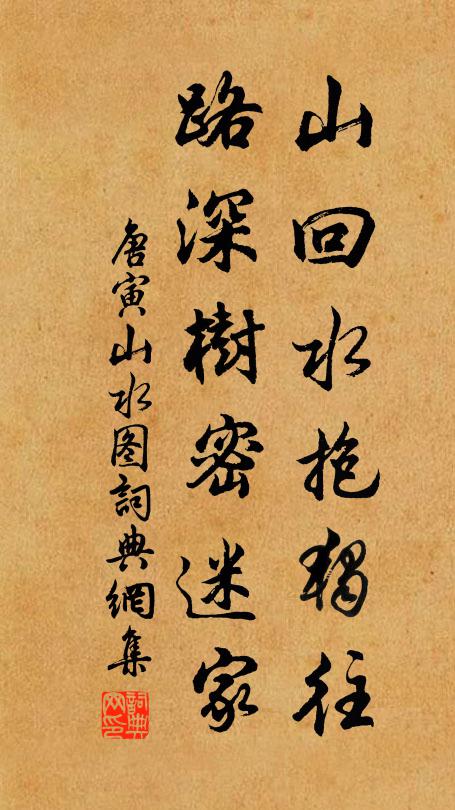 山回水抱獨往
路深樹密迷家
唐寅山水图詞典網集
詞典網印